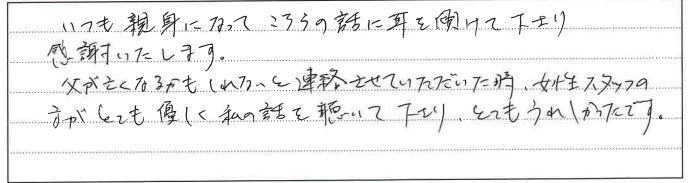 いつも親身になって こちらの話に耳を傾けて下さり
感謝いたします。
父が亡くなるかもしれないと連絡させていただいた時、女性スタッフの
方がとても優しく私の話を聴いて下さり、とてもうれしかったです。